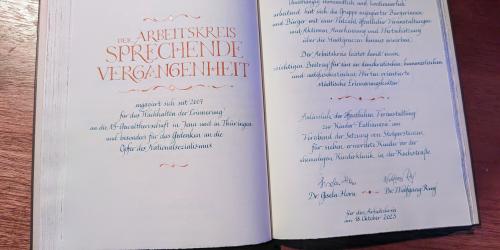 DER ARBEITSKREIS
SPRECHENDE
VERGANGENHEIT
engagiert sich seit 2009
für das Wachhalten der Erinnerung
an die NS-Gewaltherrschaft in Jena und in Thüringen
und besonders für das Gedenken an die
Opfer des Nationalsozialismus
Unabhängig, ehrenamtlich und kontinuierlich
arbeitend, hat sich die Gruppe engagierter Bürgerinnen
und Bürger mit einer Vielzahl öffentlicher Veranstaltungen
und Aktionen Anerkennung und Wertschätzung
über die Stadtgrenzen hinaus erworben.
Der Arbeitskreis leistet damit einen
wichtigen Beitrag für eine an demokratischen, humanistischen
und antifaschistischen Werten orientierte
städtische Erinnerungskultur
Anlässlich der öffentlichen Veranstaltung
zur Kinder-Euthanasie am
Vorabend der Setzung von Stolpersteinen
für sieben ermordete Kinder vor der
ehemaligen Kinderklinik in der Kochstraße.
Dr. Gisela Horn Dr. Wolfgang Rug
für den Arbeitskreis
am 18. Oktober 2023